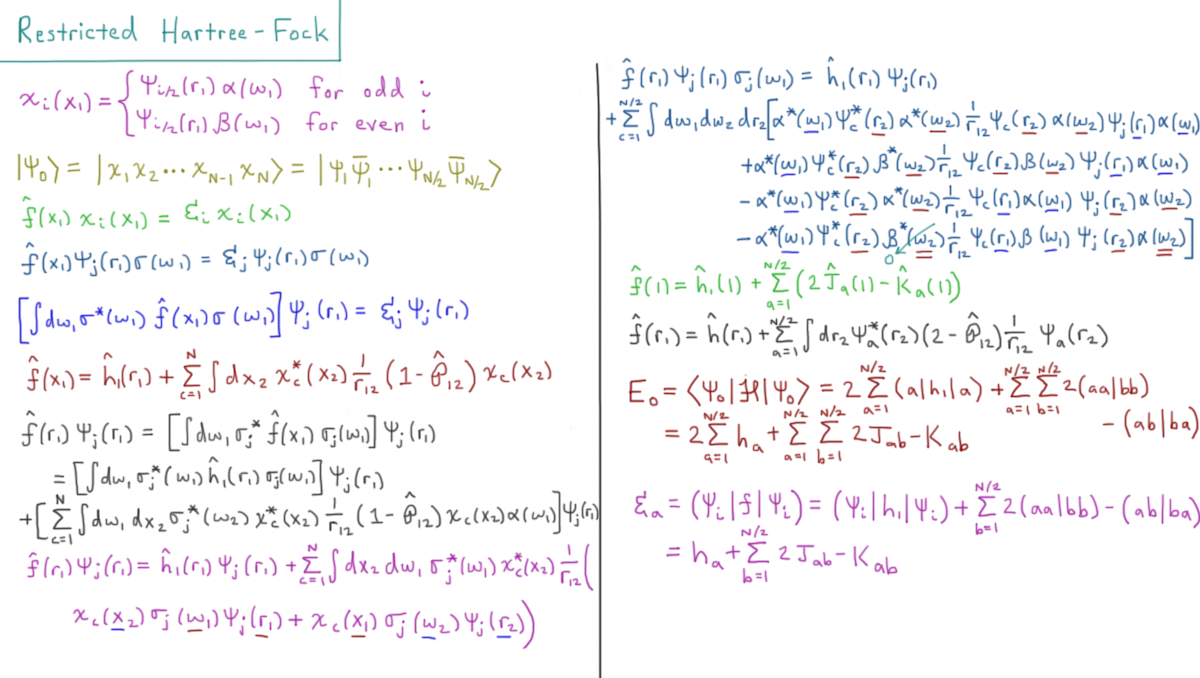 Restricted Hartree-Fock
χᵢ(x₁) = { Ψᵢ/₂(r₁) α(ω₁) for odd i
Ψᵢ/₂(r₁) β(ω₁) for even i
|Ψ₀⟩ = |χ₁χ₂⋯χ_{N-1} χ_N⟩ = |Ψ₁Ψ̄₁⋯Ψ_{N/2}Ψ̄_{N/2}⟩
f̂(x₁) χᵢ(x₁) = ℰᵢ χᵢ(x₁)
f̂(x₁)Ψⱼ(r₁)σ(ω₁) = ℰⱼ Ψⱼ(r₁)σ(ω₁)
[∫dω₁ σ*(ω₁) f̂(x₁)σ(ω₁)] Ψⱼ(r₁) = ℰⱼ Ψⱼ(r₁)
f̂(x₁) = ĥ₁(r₁) + Σ_{c=1}^{N} ∫dx₂ χ_c*(x₂) 1/r₁₂ (1-𝒫̂₁₂) χ_c(x₂)
f̂(r₁)Ψⱼ(r₁) = [∫dω₁ σⱼ* f̂(x₁) σⱼ(ω₁)] Ψⱼ(r₁)
= [∫dω₁ σⱼ*(ω₁) ĥ₁(r₁) σⱼ(ω₁)] Ψⱼ(r₁)
+[Σ_{c=1}^{N} ∫dω₁ dx₂ σⱼ*(ω₂) χ_c*(x₂) 1/r₁₂ (1-𝒫̂₁₂) χ_c(x₂)α(ω₁)]Ψⱼ(r₁)
f̂(r₁)Ψⱼ(r₁) = ĥ₁(r₁)Ψⱼ(r₁) + Σ_{c=1}^{N} ∫dx₂ dω₁ σⱼ*(ω₁) χ_c*(x₂) 1/r₁₂ (
χ_c(x₂) σⱼ(ω₁)Ψⱼ(r₁) + χ_c(x₁) σⱼ(ω₂)Ψⱼ(r₂))
f̂(r₁)Ψⱼ(r₁)σⱼ(ω₁) = ĥ₁(r₁)Ψⱼ(r₁)
+Σ_{c=1}^{N/2} ∫dω₁dω₂dr₂[α*(ω₁)Ψ_c*(r₂)α*(ω₂) 1/r₁₂ Ψ_c(r₂)α(ω₂)Ψⱼ(r₁)α(ω₁)
+α*(ω₁)Ψ_c*(r₂)β*(ω₂) 1/r₁₂ Ψ_c(r₂)β(ω₂)Ψⱼ(r₁)α(ω₁)
-α*(ω₁)Ψ_c*(r₂)α*(ω₂) 1/r₁₂ Ψ_c(r₁)α(ω₁)Ψⱼ(r₂)α(ω₂)
-α*(ω₁)Ψ_c*(r₂)β*(ω₂) 1/r₁₂ Ψ_c(r₁)β(ω₁)Ψⱼ(r₂)α(ω₂)]
0
f̂(1) = ĥ₁(1) + Σ_{a=1}^{N/2} (2Ĵ_a(1) - K̂_a(1))
f̂(r₁) = ĥ(r₁) + Σ_{a=1}^{N/2} ∫dr₂ Ψ_a*(r₂)(2-𝒫̂₁₂) 1/r₁₂ Ψ_a(r₂)
E₀ = ⟨Ψ₀|ℋ|Ψ₀⟩ = 2Σ_{a=1}^{N/2} (a|h₁|a) + Σ_{a=1}^{N/2} Σ_{b=1}^{N/2} 2(aa|bb)
- (ab|ba)
= 2Σ_{a=1}^{N/2} h_a + Σ_{a=1}^{N/2} Σ_{b=1}^{N/2} 2J_{ab} - K_{ab}
ℰ_a = (Ψᵢ|f|Ψᵢ) = (Ψᵢ|h₁|Ψᵢ) + Σ_{b=1}^{N/2} 2(aa|bb) - (ab|ba)
= h_a + Σ_{b=1}^{N/2} 2J_{ab} - K_{ab}